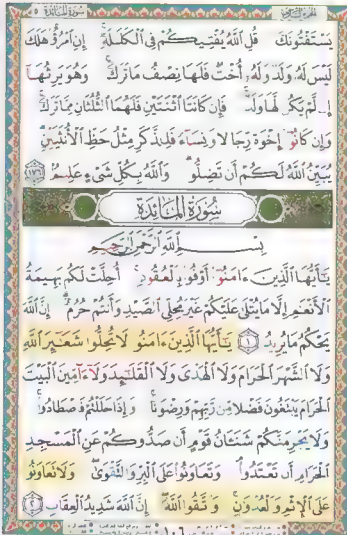 سورة المائدة ٥
يستفتونك قل الله يفتيكم في الكللة إن امرؤا هلك
ليس له ولد وله أخت فلها نصف ما ترك وهو يرثها
إن لم يكن لها ولد فإن كانتا اثنتين فلهما الثلثان مما ترك
وإن كانوا إخوة رجالا ونساء فللذكر مثل حظ الأنثيين
يبين الله لكم أن تضلوا والله بكل شيء عليم ١٧٦
سورة المائدة
بسم الله الرحمن الرحيم
يأيها الذين ءامنوا أوفوا بالعقود أحلت لكم بهيمة
الأنعم إلا ما يتلى عليكم غير محلي الصيد وأنتم حرم إن الله
يحكم ما يريد ١ يأيها الذين ءامنوا لا تحلوا شعير الله
ولا الشهر الحرام ولا الهدى ولا القليد ولا ءامين البيت
الحرام يبتغون فضلا من ربهم ورضونا وإذا حللتم فاصطادوا
ولا يجرمنكم شنئان قوم أن صدوكم عن المسجد
الحرام أن تعتدوا وتعاونوا على البر والتقوى ولا تعاونوا
على الإثم والعدون واتقوا الله إن الله شديد العقاب ٢
١٠٦